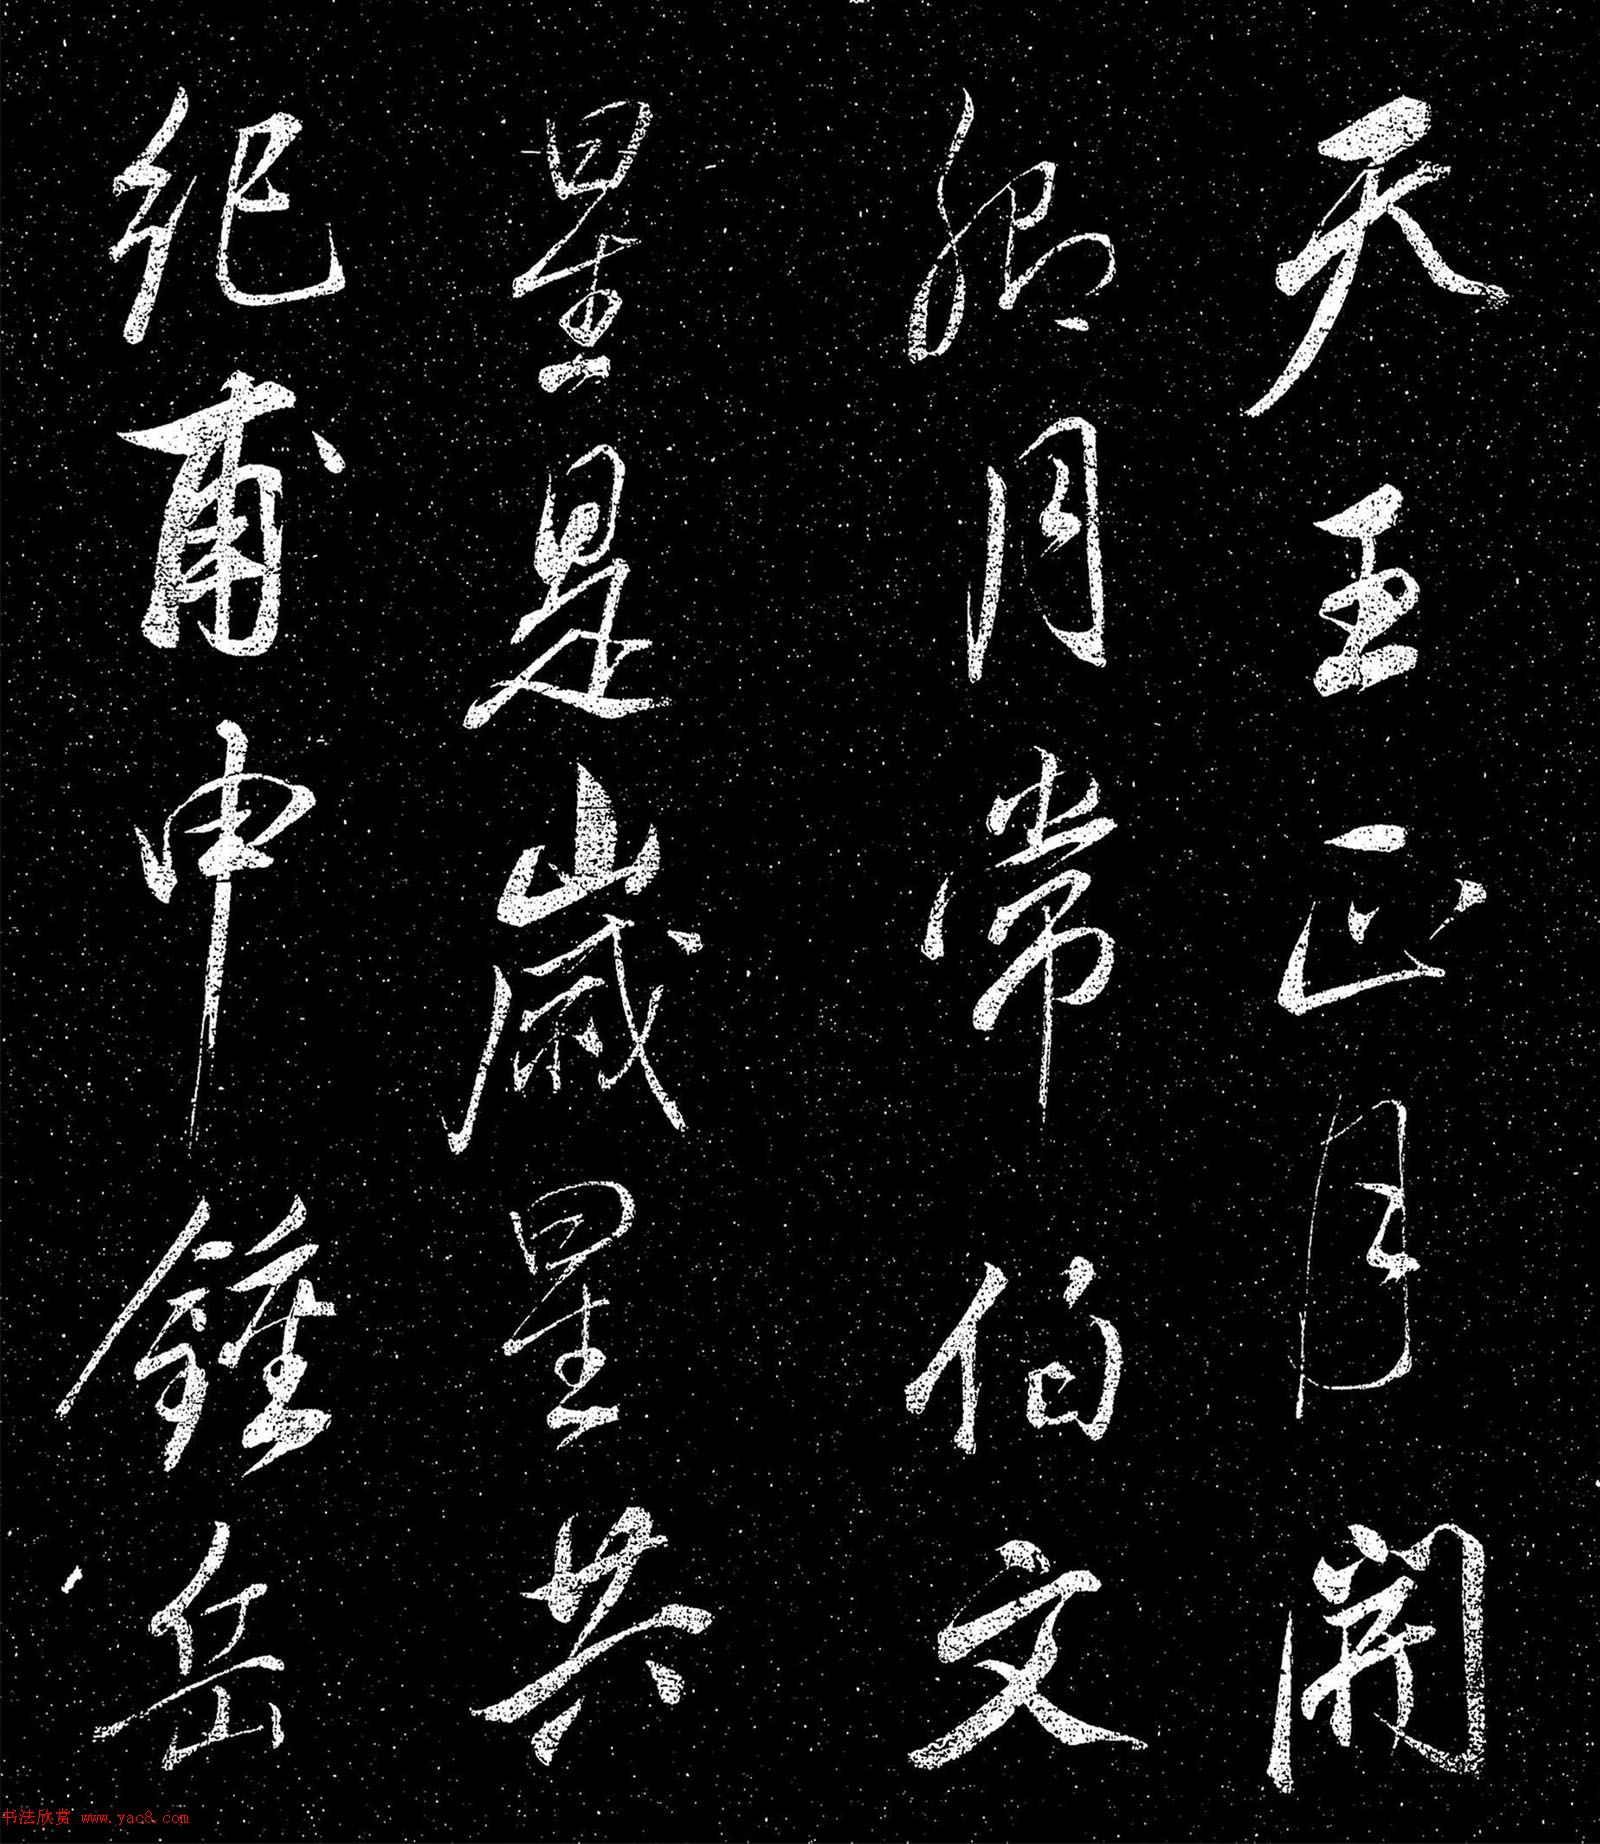 天王正月開
紹月常伯文
星是歲星共
紀甫申鍾岳
书法欣赏 www.yac8.com